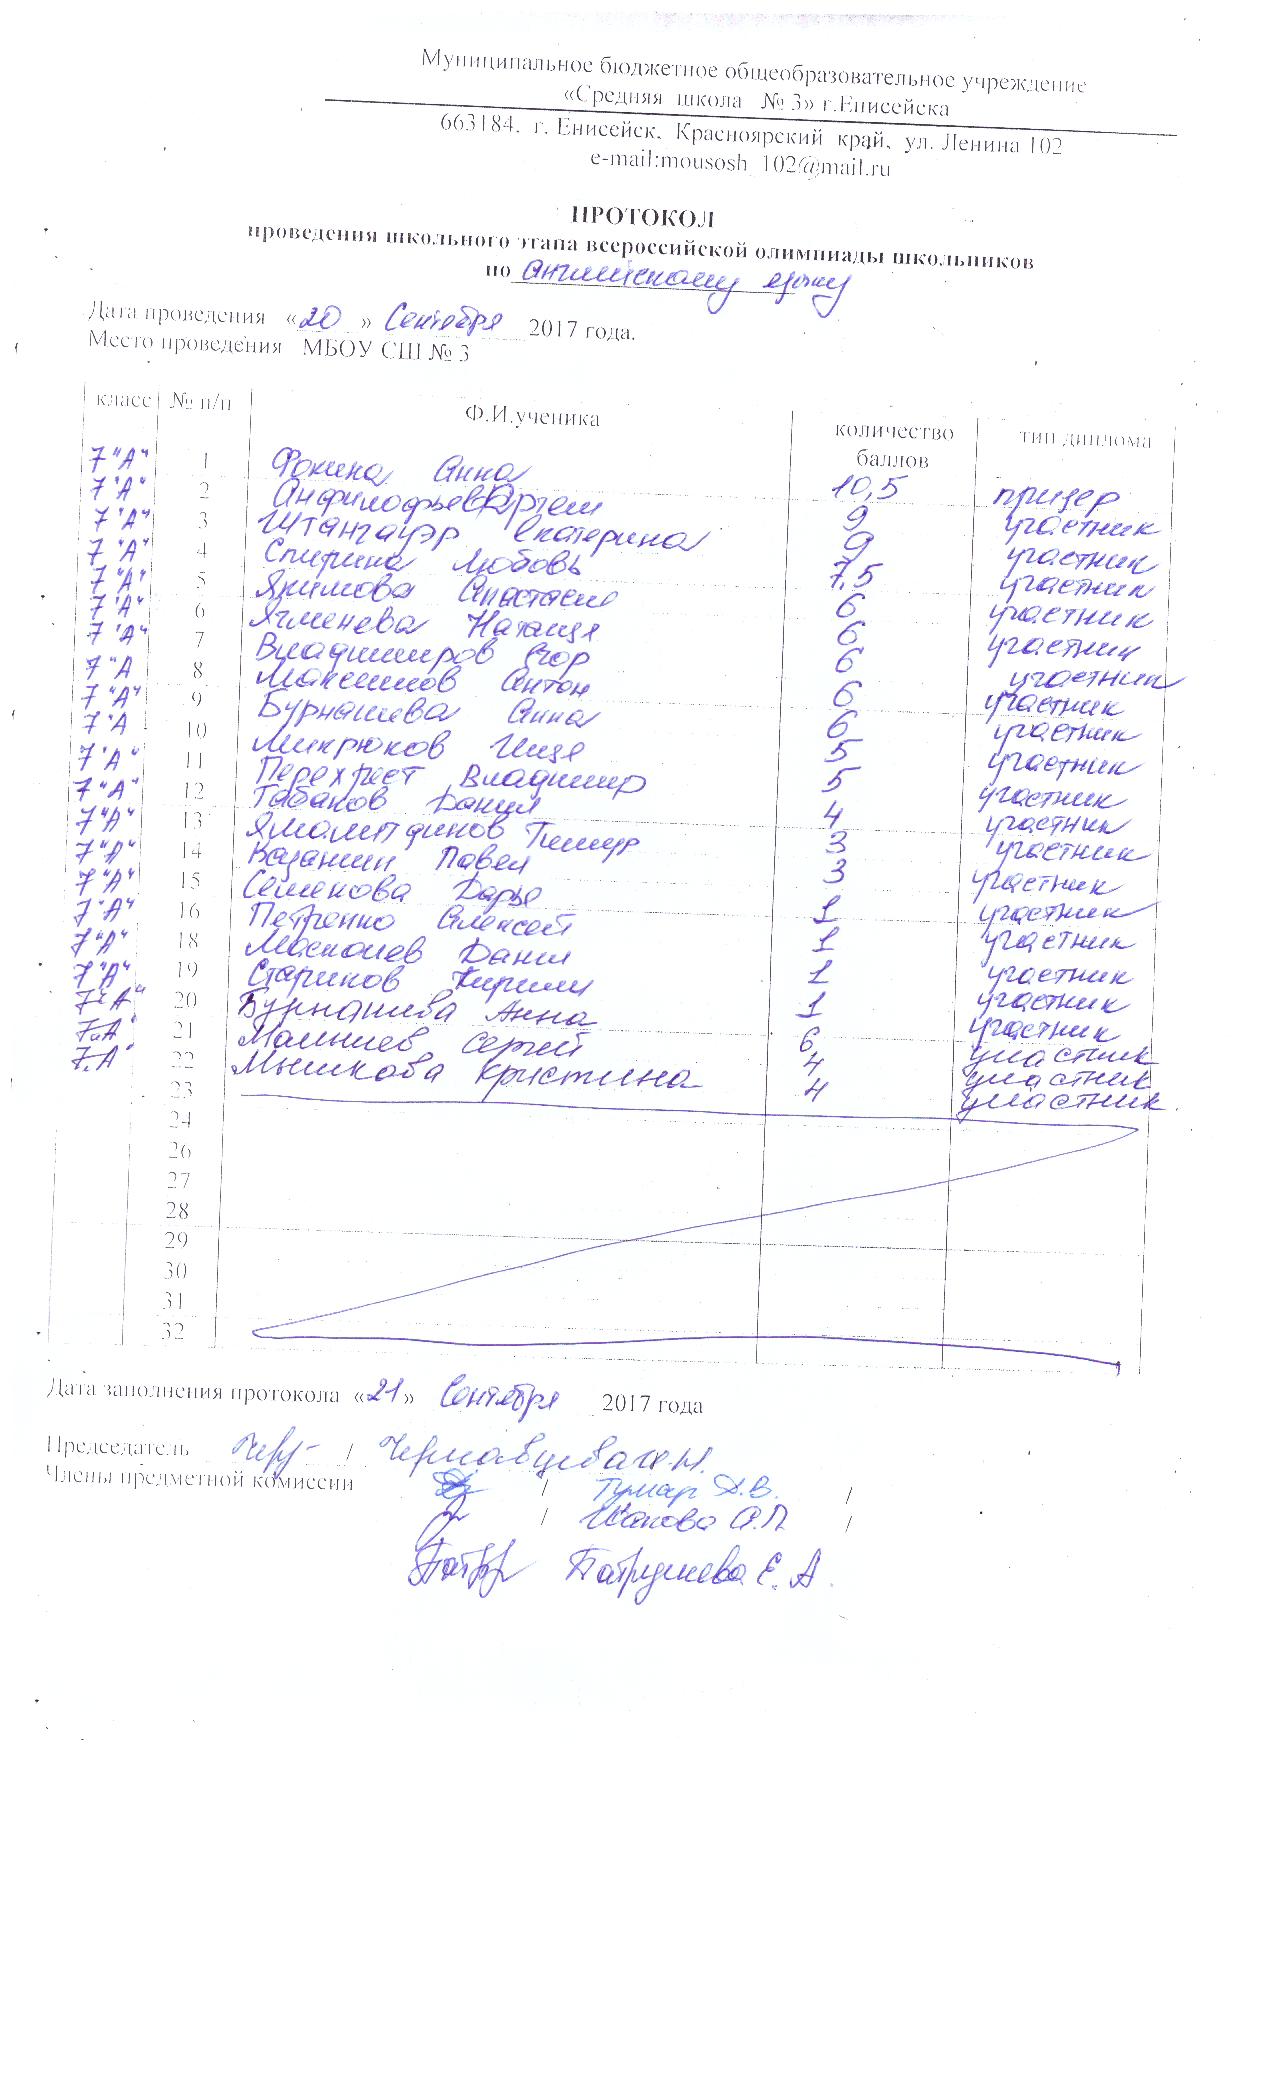 Муниципальное бюджетное общеобразовательное учреждение
«Средняя школа № 3» г.Енисейска
663184, г. Енисейск, Красноярский край, ул. Ленина 102
e-mail:mousosh_102@mail.ru
ПРОТОКОЛ
проведения школьного этапа всероссийской олимпиады школьников
по английскому языку
Дата проведения «20» Сентября 2017 года.
Место проведения МБОУ СШ № 3
класс № п/п Ф.И.ученика количество баллов тип диплома
7"А" 1 Фокина Анна 10,5 призер
7"А" 2 Анфилофьев Артем 9 участник
7"А" 3 Штангауэр Екатерина 9 участник
7"А" 4 Спирина Любовь 7,5 участник
7"А" 5 Якимова Анастасия 6 участник
7"А" 6 Ячменева Наталья 6 участник
7"А" 7 Владимиров Егор 6 участник
7"А 8 Максимов Антон 6 участник
7"А" 9 Бурнашева Анна 6 участник
7"А 10 Микрюков Илья 5 участник
7"А" 11 Перехрест Владимир 5 участник
7"А" 12 Табаков Данил 4 участник
7"А" 13 Ямалитдинов Тимур 3 участник
7"А" 14 Казанин Павел 3 участник
7"А" 15 Семенова Дарья 1 участник
7"А" 16 Петренко Алексей 1 участник
7"А" 18 Москалев Данил 1 участник
7"А" 19 Стариков Кирилл 1 участник
7"А" 20 Бурнашева Анна 6 участник
7"А" 21 Малышев Сергей 4 участник
7"А" 22 Мышкова Кристина 4 участник
23
24
26
27
28
29
30
31
32
Дата заполнения протокола «21» Сентября 2017 года
Председатель / Чернавцева И.Н.
Члены предметной комиссии / Тумар Д.В. /
/ Исакова О.П. /
Патрушева Е.А.